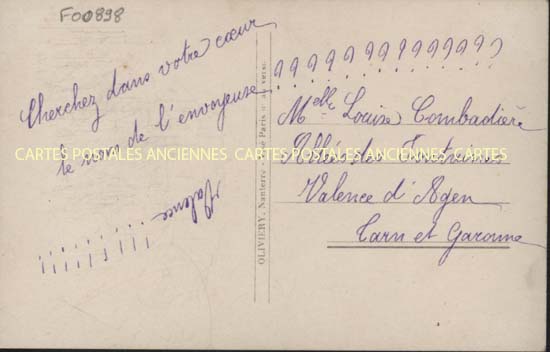 F00898
Cherchez dans votre cœur
le nom de l'envoyeuse
Valence ..........
!!!!!!!!!!
OLIVIERY, Nanterre
Paris
? ? ? ? ? ? ? ? ? ? ? ? ? ?
Melle Louise Combadière
Allée des
Valence d'Agen
Tarn et Garonne
CARTES POSTALES ANCIENNES CARTES POSTALES ANCIENNES CARTES